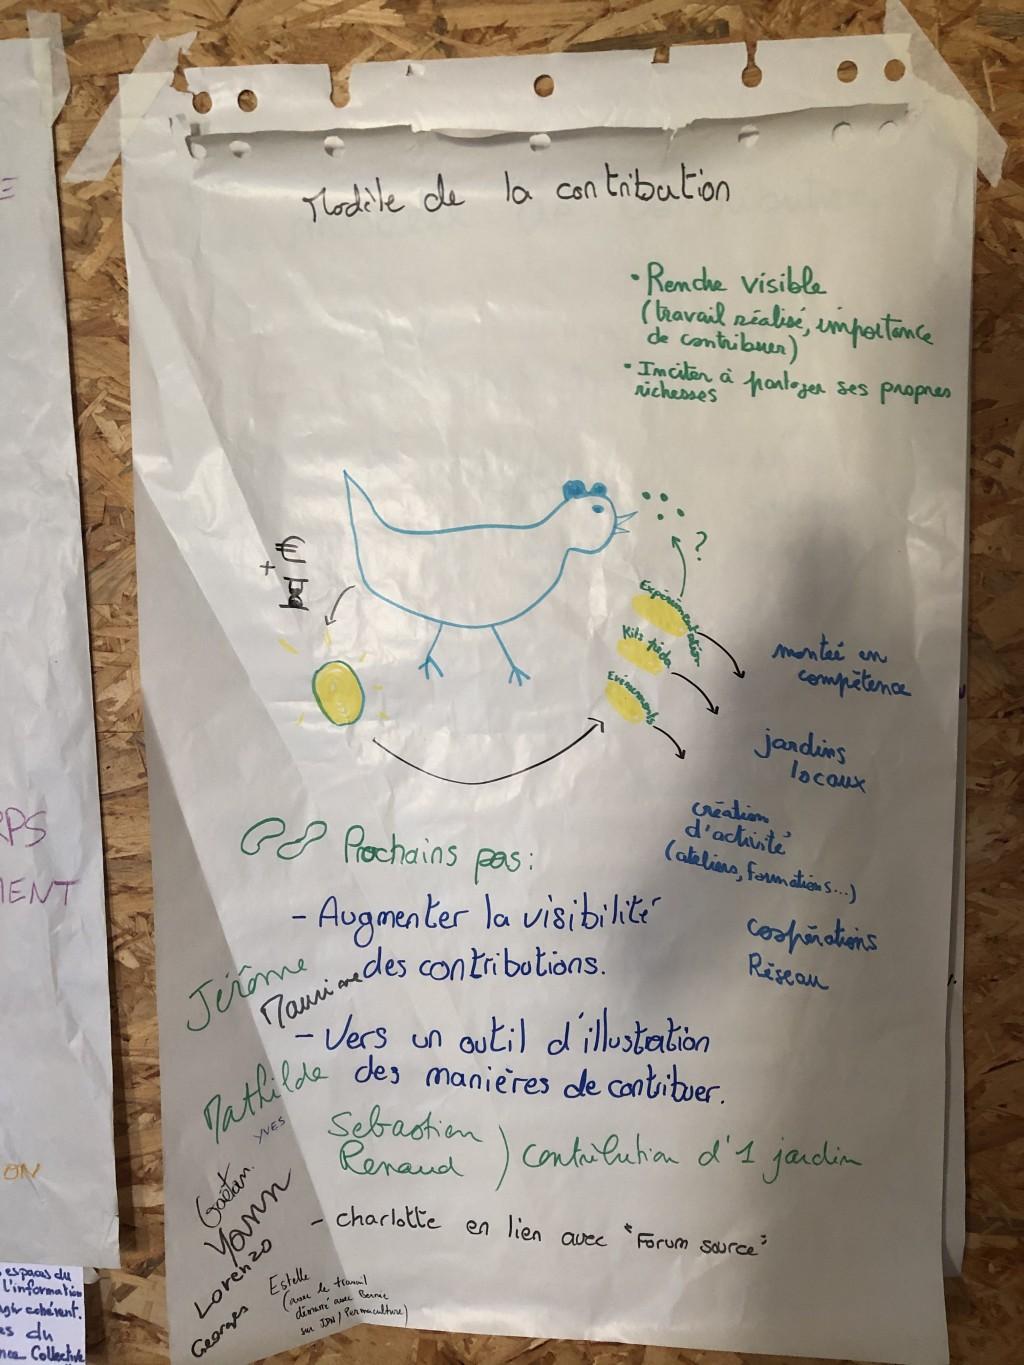 Modèle de la contribution
• Rendre visible
(travail réalisé, importance
de contribuer)
• Inciter à partager ses propres
richesses
€
+
?
Expérimentation
Kits péda
Evénements
montée en
compétence
jardins
locaux
création
d'activité
(ateliers, formations...)
coopérations
Réseau
Prochains pas:
- Augmenter la visibilité
des contributions.
Jérôme
- Vers un outil d'illustration
des manières de contribuer.
Mathilde
YVES
Sebastien
Renaud
) contribution d'1 jardin
Gaëtan
Yann
Lorenzo
Georges
- charlotte en lien avec "Forum source"
Estelle
(avec le travail
démarré avec Bernie
sur JDN / Permaculture)
E
RPS
MENT
ON
espaces du
l'information
cohérent.
es du
nce Collective